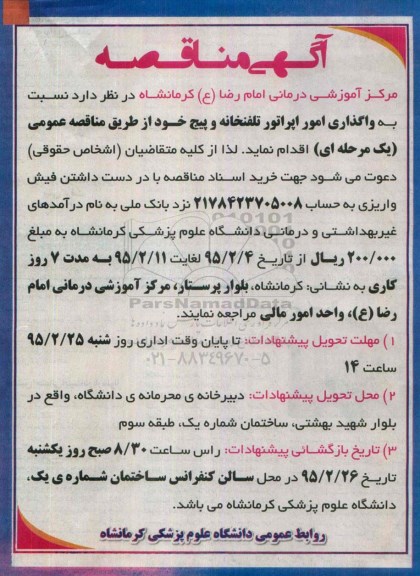 آگهی مناقصه
مرکز آموزشی درمانی امام رضا (ع) کرمانشاه در نظر دارد نسبت
به واگذاری امور اپراتور تلفنخانه و پیج خود از طریق مناقصه عمومی
(یک مرحله ای) اقدام نماید. لذا از کلیه متقاضیان (اشخاص حقوقی)
دعوت می شود جهت خرید اسناد مناقصه با در دست داشتن فیش
واریزی به حساب ۲۱۷۸۴۲۳۷۰۵۰۰۸ نزد بانک ملی به نام درآمدهای
غیربهداشتی و درمانی دانشگاه علوم پزشکی کرمانشاه به مبلغ
۲۰۰/۰۰۰ ریال از تاریخ ۹۵/۲/۴ لغایت ۹۵/۲/۱۱ به مدت ۷ روز
کاری به نشانی: کرمانشاه، بلوار پرستار، مرکز آموزشی درمانی امام
رضا (ع)، واحد امور مالی مراجعه نمایند.
۱) مهلت تحویل پیشنهادات: تا پایان وقت اداری روز شنبه ۹۵/۲/۲۵
ساعت ۱۴
۲) محل تحویل پیشنهادات: دبیرخانه ی محرمانه ی دانشگاه، واقع در
بلوار شهید بهشتی، ساختمان شماره یک، طبقه سوم
۳) تاریخ بازگشائی پیشنهادات: راس ساعت ۸/۳۰ صبح روز یکشنبه
تاریخ ۹۵/۲/۲۶ در محل سالن کنفرانس ساختمان شماره ی یک،
دانشگاه علوم پزشکی کرمانشاه می باشد.
روابط عمومی دانشگاه علوم پزشکی کرمانشاه
ParsNamadData
۰۲۱-۸۸۳۴۹۶۷۰-۵